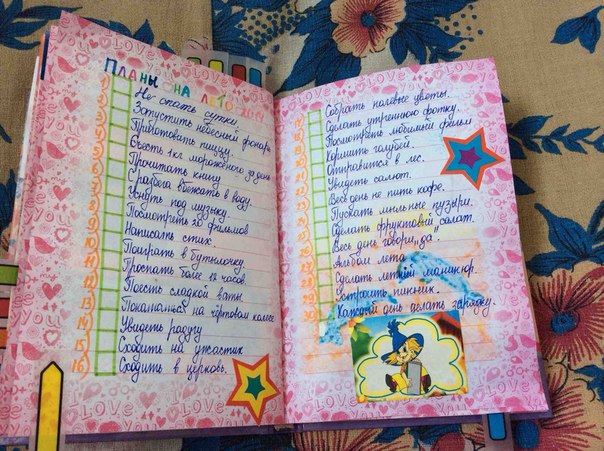 ПЛАНЫ НА ЛЕТО 2014
1) Не спать сутки
2) Запустить небесный фонарь
3) Приготовить пиццу.
4) Съесть 1кг мороженого за день
5) Прочитать книгу
6) С разбега вбежать в воду.
7) Уснуть под музыку.
8) Посмотреть 20 фильмов
9) Написать стих.
10) Поиграть в бутылочку.
11) Проспать более 12 часов.
12) Поесть сладкой ваты
13) Покататься на чёртовом колесе
14) Увидеть радугу
15) Сходить на ужастик
16) Сходить в церковь.
Собрать полевые цветы.
Сделать утреннюю фотку.
Посмотреть любимый фильм
Кормить голубей.
Отправится в лес.
Увидеть салют.
Весь день не пить кофе.
Пускать мыльные пузыри.
Сделать фруктовый салат.
Весь день говори „да".
Альбом лета
Сделать летний маникюр.
Устроить пикник.
Каждый день делать зарядку.
LOVE
LOVE
LOVE
I LOVE